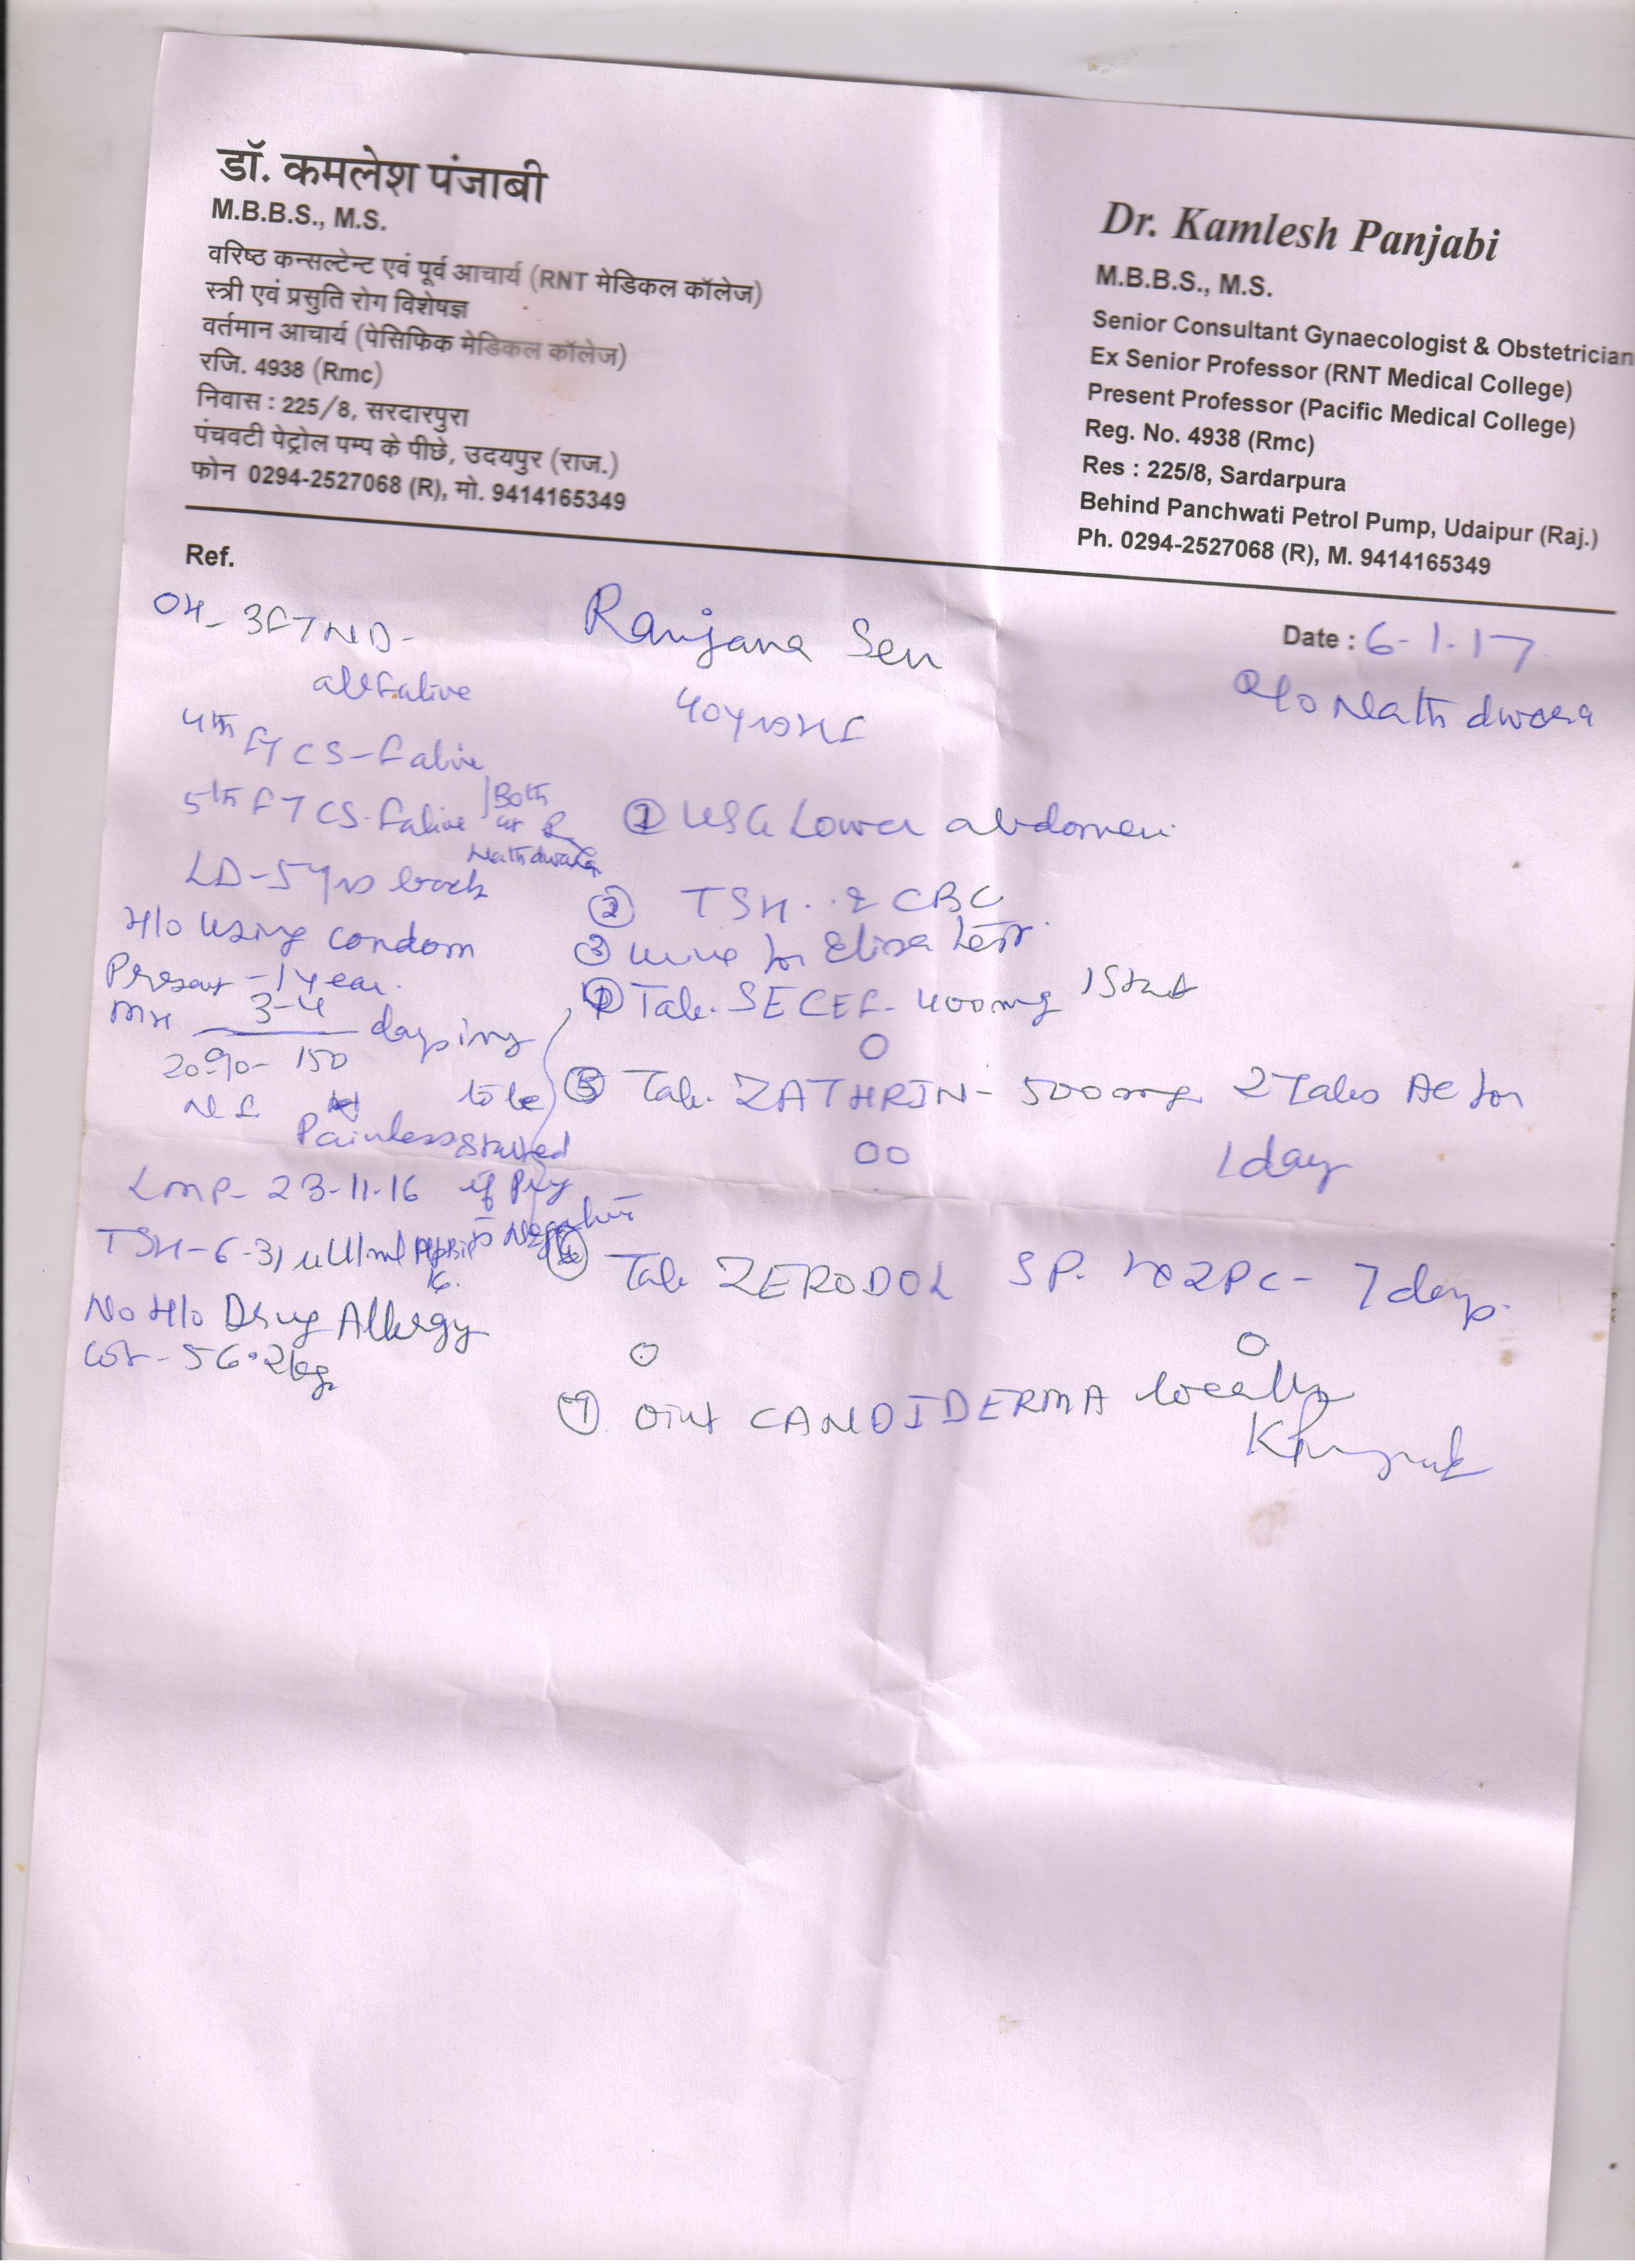 डॉ. कमलेश पंजाबी
M.B.B.S., M.S.
वरिष्ठ कन्सल्टेन्ट एवं पूर्व आचार्य (RNT मेडिकल कॉलेज)
स्त्री एवं प्रसुति रोग विशेषज्ञ
वर्तमान आचार्य (पेसिफिक मेडिकल कॉलेज)
रजि. 4938 (Rmc)
निवास : 225/8, सरदारपुरा
पंचवटी पेट्रोल पम्प के पीछे, उदयपुर (राज.)
फोन 0294-2527068 (R), मो. 9414165349
Dr. Kamlesh Panjabi
M.B.B.S., M.S.
Senior Consultant Gynaecologist & Obstetrician
Ex Senior Professor (RNT Medical College)
Present Professor (Pacific Medical College)
Reg. No. 4938 (Rmc)
Res : 225/8, Sardarpura
Behind Panchwati Petrol Pump, Udaipur (Raj.)
Ph. 0294-2527068 (R), M. 9414165349
Ref.
Ranjana Sen
Date : 6-1-17
R/o Nathdwara
OH- 3FTND-
all F alive
4th FTCS-F alive
5th FTCS-F alive
Both at
Nathdwara
LD-5yrs back
H/o using condom
Present - 1 year.
MH 3-4 days
20-90- 150
Painless
LMP- 23-11-16
TSH-6.31 uIU/ml
16.
No H/o Drug Allergy
wt- 56.2kg
to be
started
if Preg
is Negative
① USG Lower abdomen
② TSH & CBC
③ urine for Elisa test
④ Tab. SECEF 400mg 1 Stat
⑤ Tab. ZATHRIN- 500mg 2 Tabs AC for
1 day
⑥ Tab ZERODOL SP. 1x2PC- 7 days.
⑦ oint CANDIDERMA locally